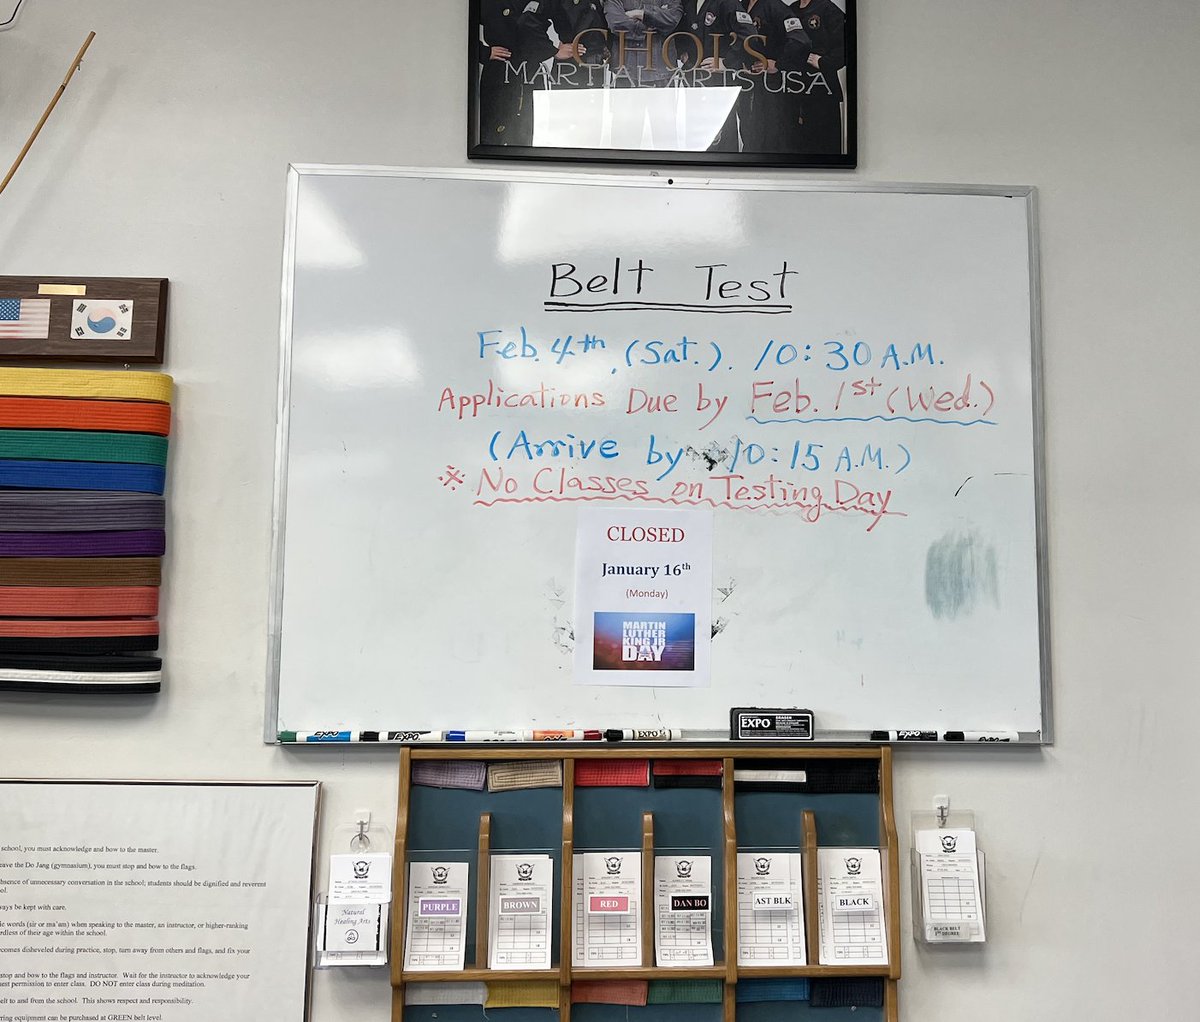 CHOI'S
MARTIAL ARTS USA
Belt Test
Feb. 4th, (Sat.). 10:30 A.M.
Applications Due by Feb. 1st (Wed.)
(Arrive by 10:15 A.M.)
※ No Classes on Testing Day
CLOSED
January 16th
(Monday)
MARTIN
LUTHER
KING JR
DAY
EXPO
EXPO
EXPO
EXPO
ERASER
EXPO
school, you must acknowledge and bow to the master.
eave the Do Jang (gymnasium), you must stop and bow to the flags.
bsence of unnecessary conversation in the school; students should be dignified and reverent
ays be kept with care.
ic words (sir or ma'am) when speaking to the master, an instructor, or higher-ranking
rdless of their age within the school.
comes disheveled during practice, stop, turn away from others and flags, and fix your
stop and bow to the flags and instructor. Wait for the instructor to acknowledge your
est permission to enter class. DO NOT enter class during meditation.
elt to and from the school. This shows respect and responsibility.
ring equipment can be purchased at GREEN belt level.
Natural
Healing Arts
PURPLE
BROWN
RED
DAN BO
AST BLK
BLACK
BLACK BELT
1st DEGREE